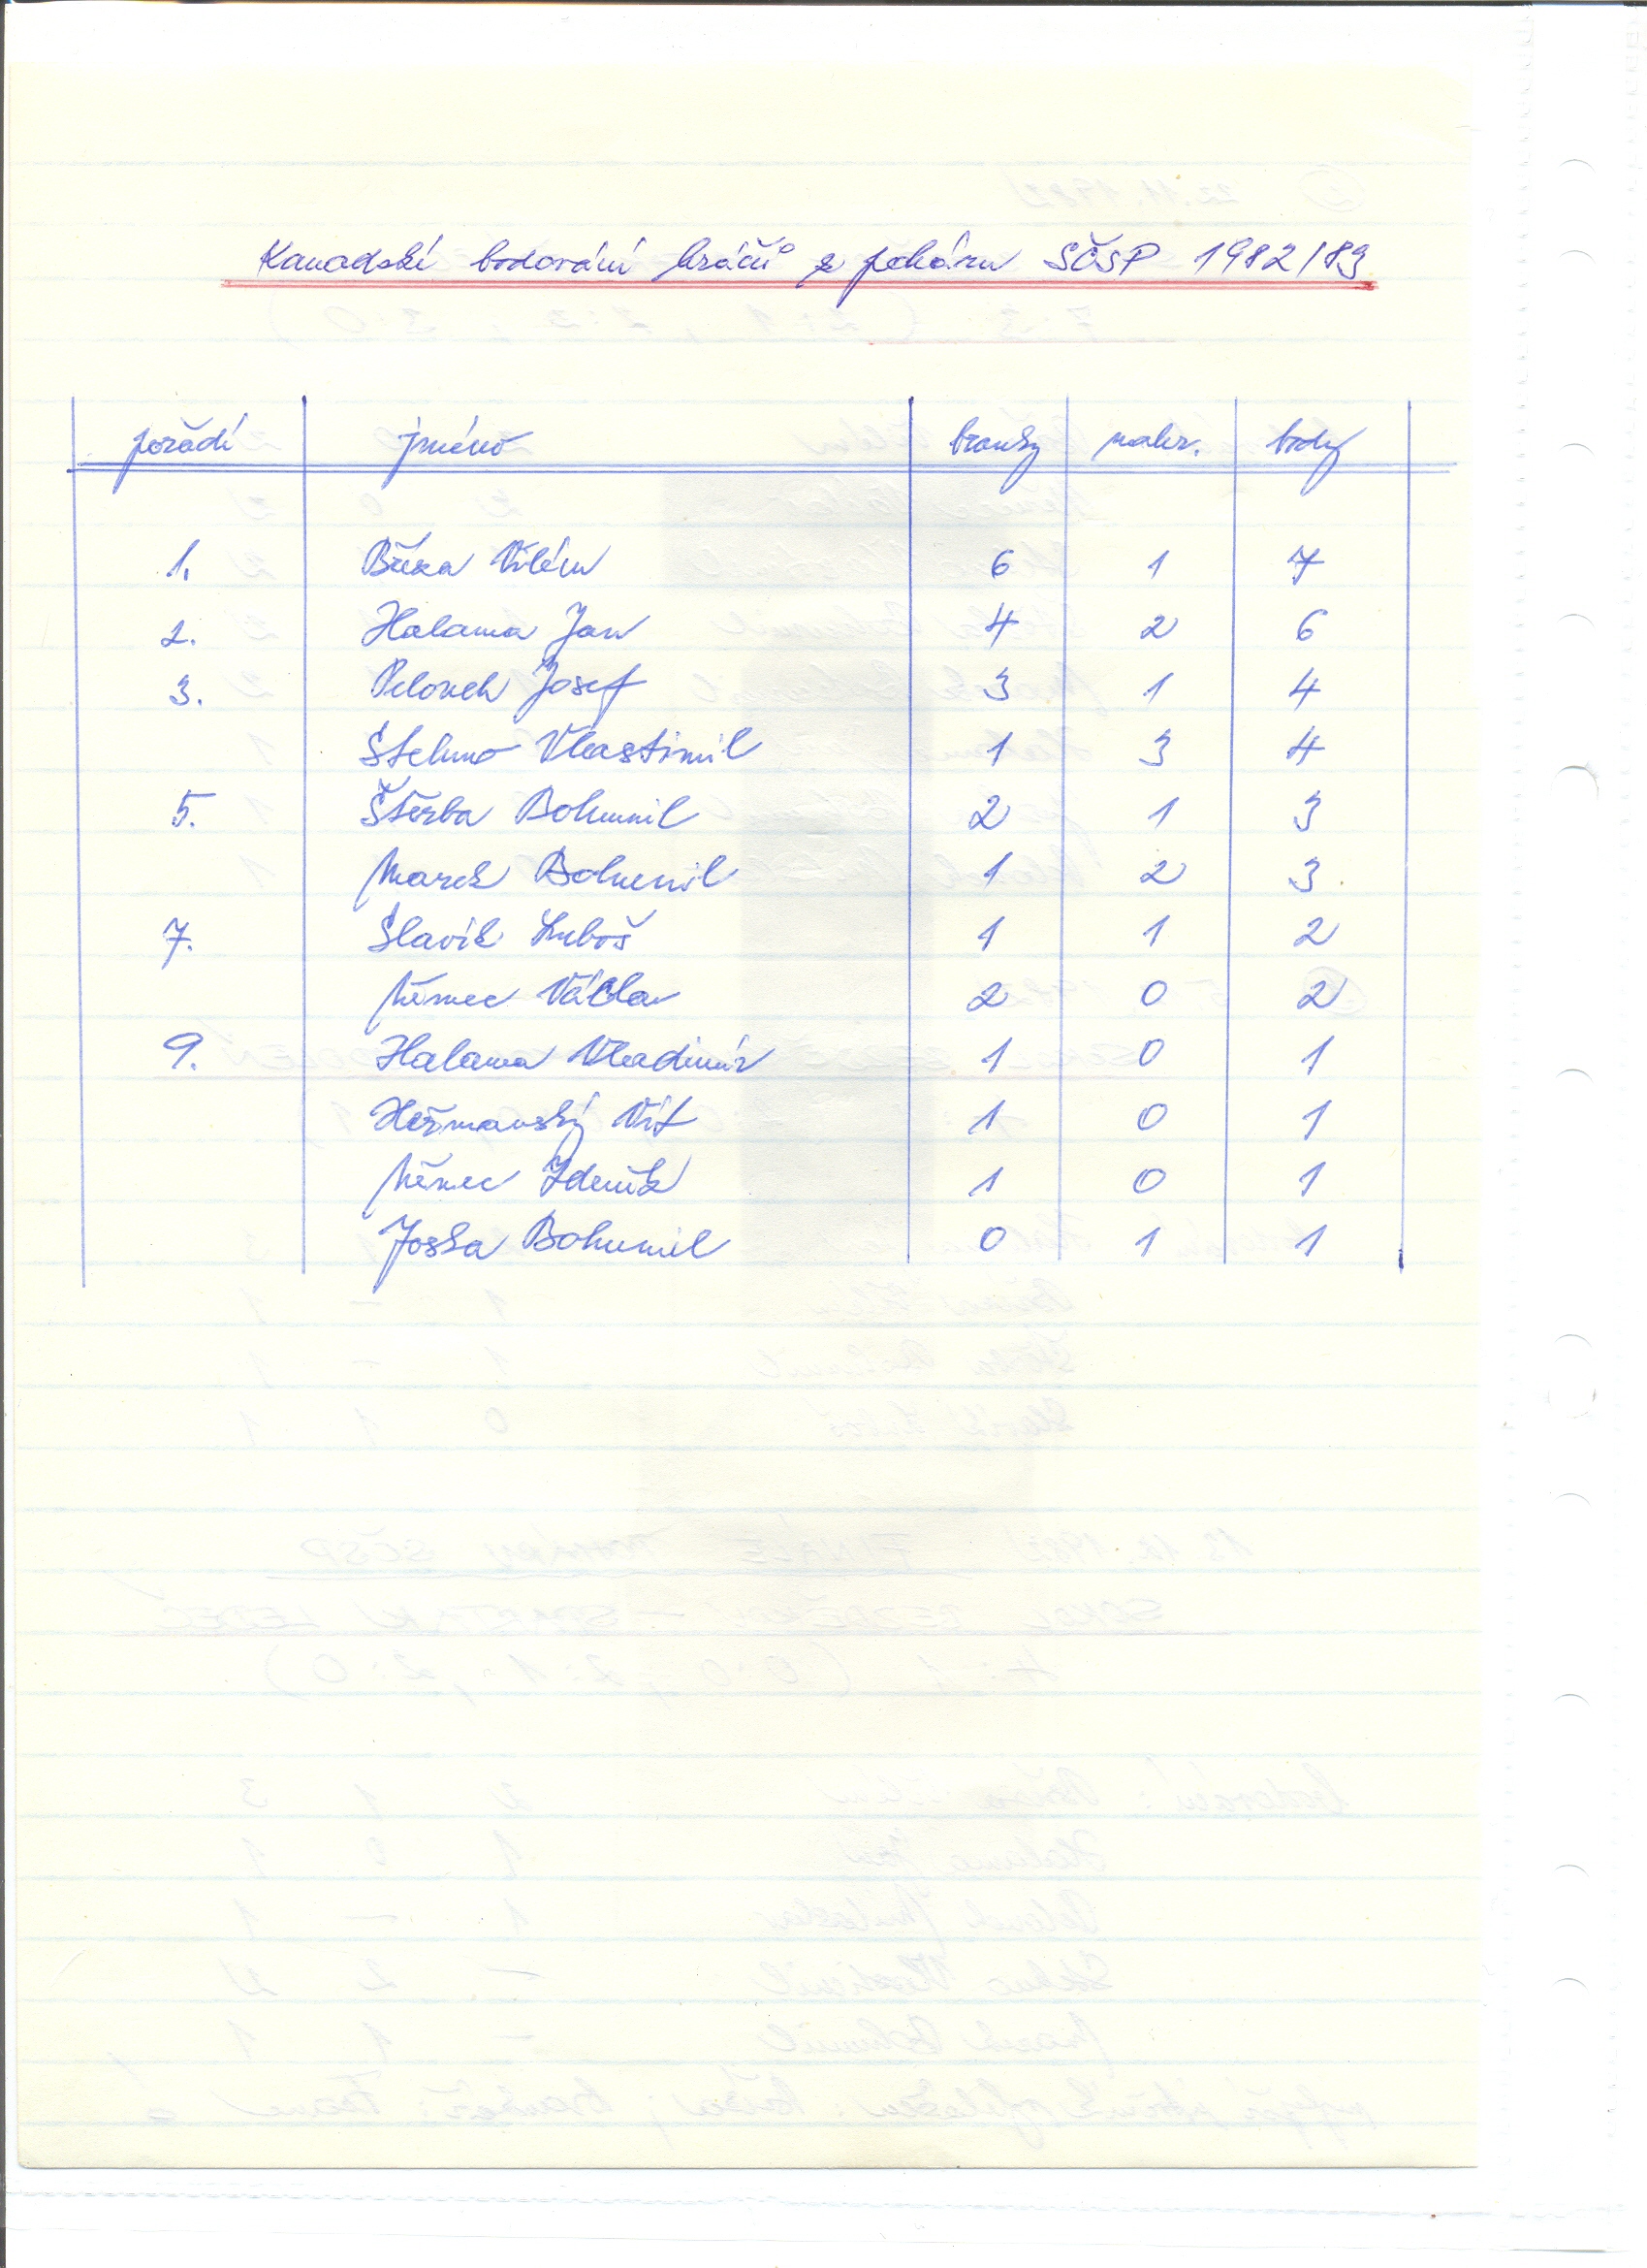 Kanadské bodování hráčů z poháru SČSP 1982/83
pořadí jméno branky nahr. body
1. Bříza Vilém 6 1 7
2. Halama Jan 4 2 6
3. Josef 3 1 4
Stehno Vlastimil 1 3 4
5. Štěrba Bohumil 2 1 3
Marek Bohumil 1 2 3
7. Slavík Luboš 1 1 2
Němec Václav 2 0 2
9. Halama Vladimír 1 0 1
Heřmanský Vít 1 0 1
Němec Zdeněk 1 0 1
Joska Bohumil 0 1 1